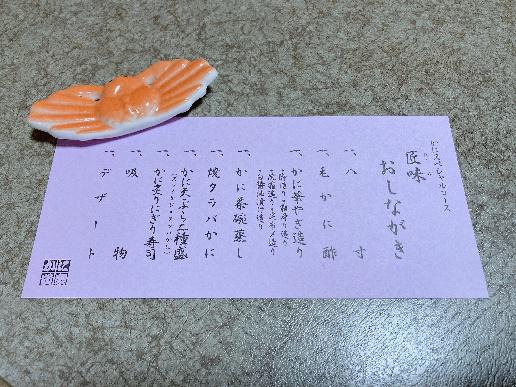 かにスペシャルコース
匠味
おしながき
一、八寸
一、毛かに酢
一、かに華やぎ造り
一、かに茶碗蒸し
一、焼タラバかに
一、かに天ぷら二種盛
一、かに炙りにぎり寿司
一、吸物
一、デザート